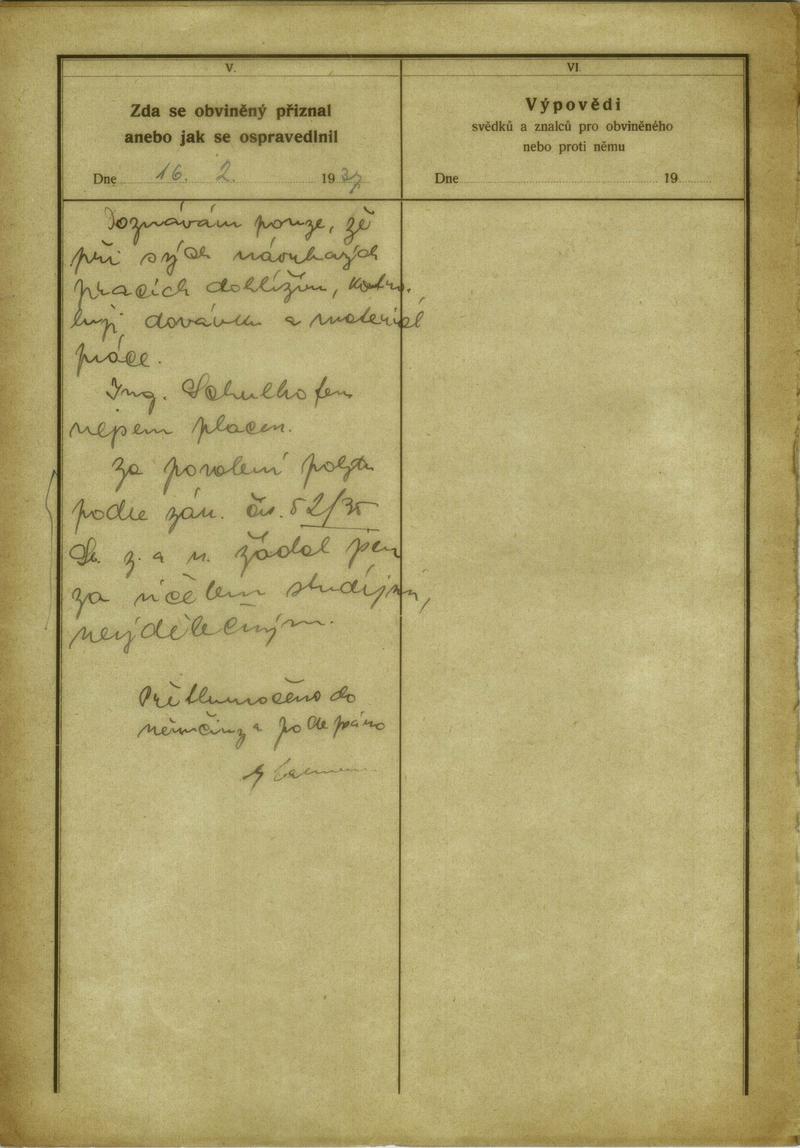 V.
Zda se obviněný přiznal
anebo jak se ospravedlnil
Dne 16. 2. 1937
Doznávám pouze, že
při svých návrhových
pracích dohlížím, kontro-
luji dovávku a materiál
práce.
Ing. Schulhofem
nejsem placen.
Za povolení pobytu
podle zák. čís. 52/35
Sb. z. a n. žádal jsem
za účelem studijním,
nevýdělečným.
Přetlumočeno do
němčiny a podepsáno
VI.
Výpovědi
svědků a znalců pro obviněného
nebo proti němu
Dne 19